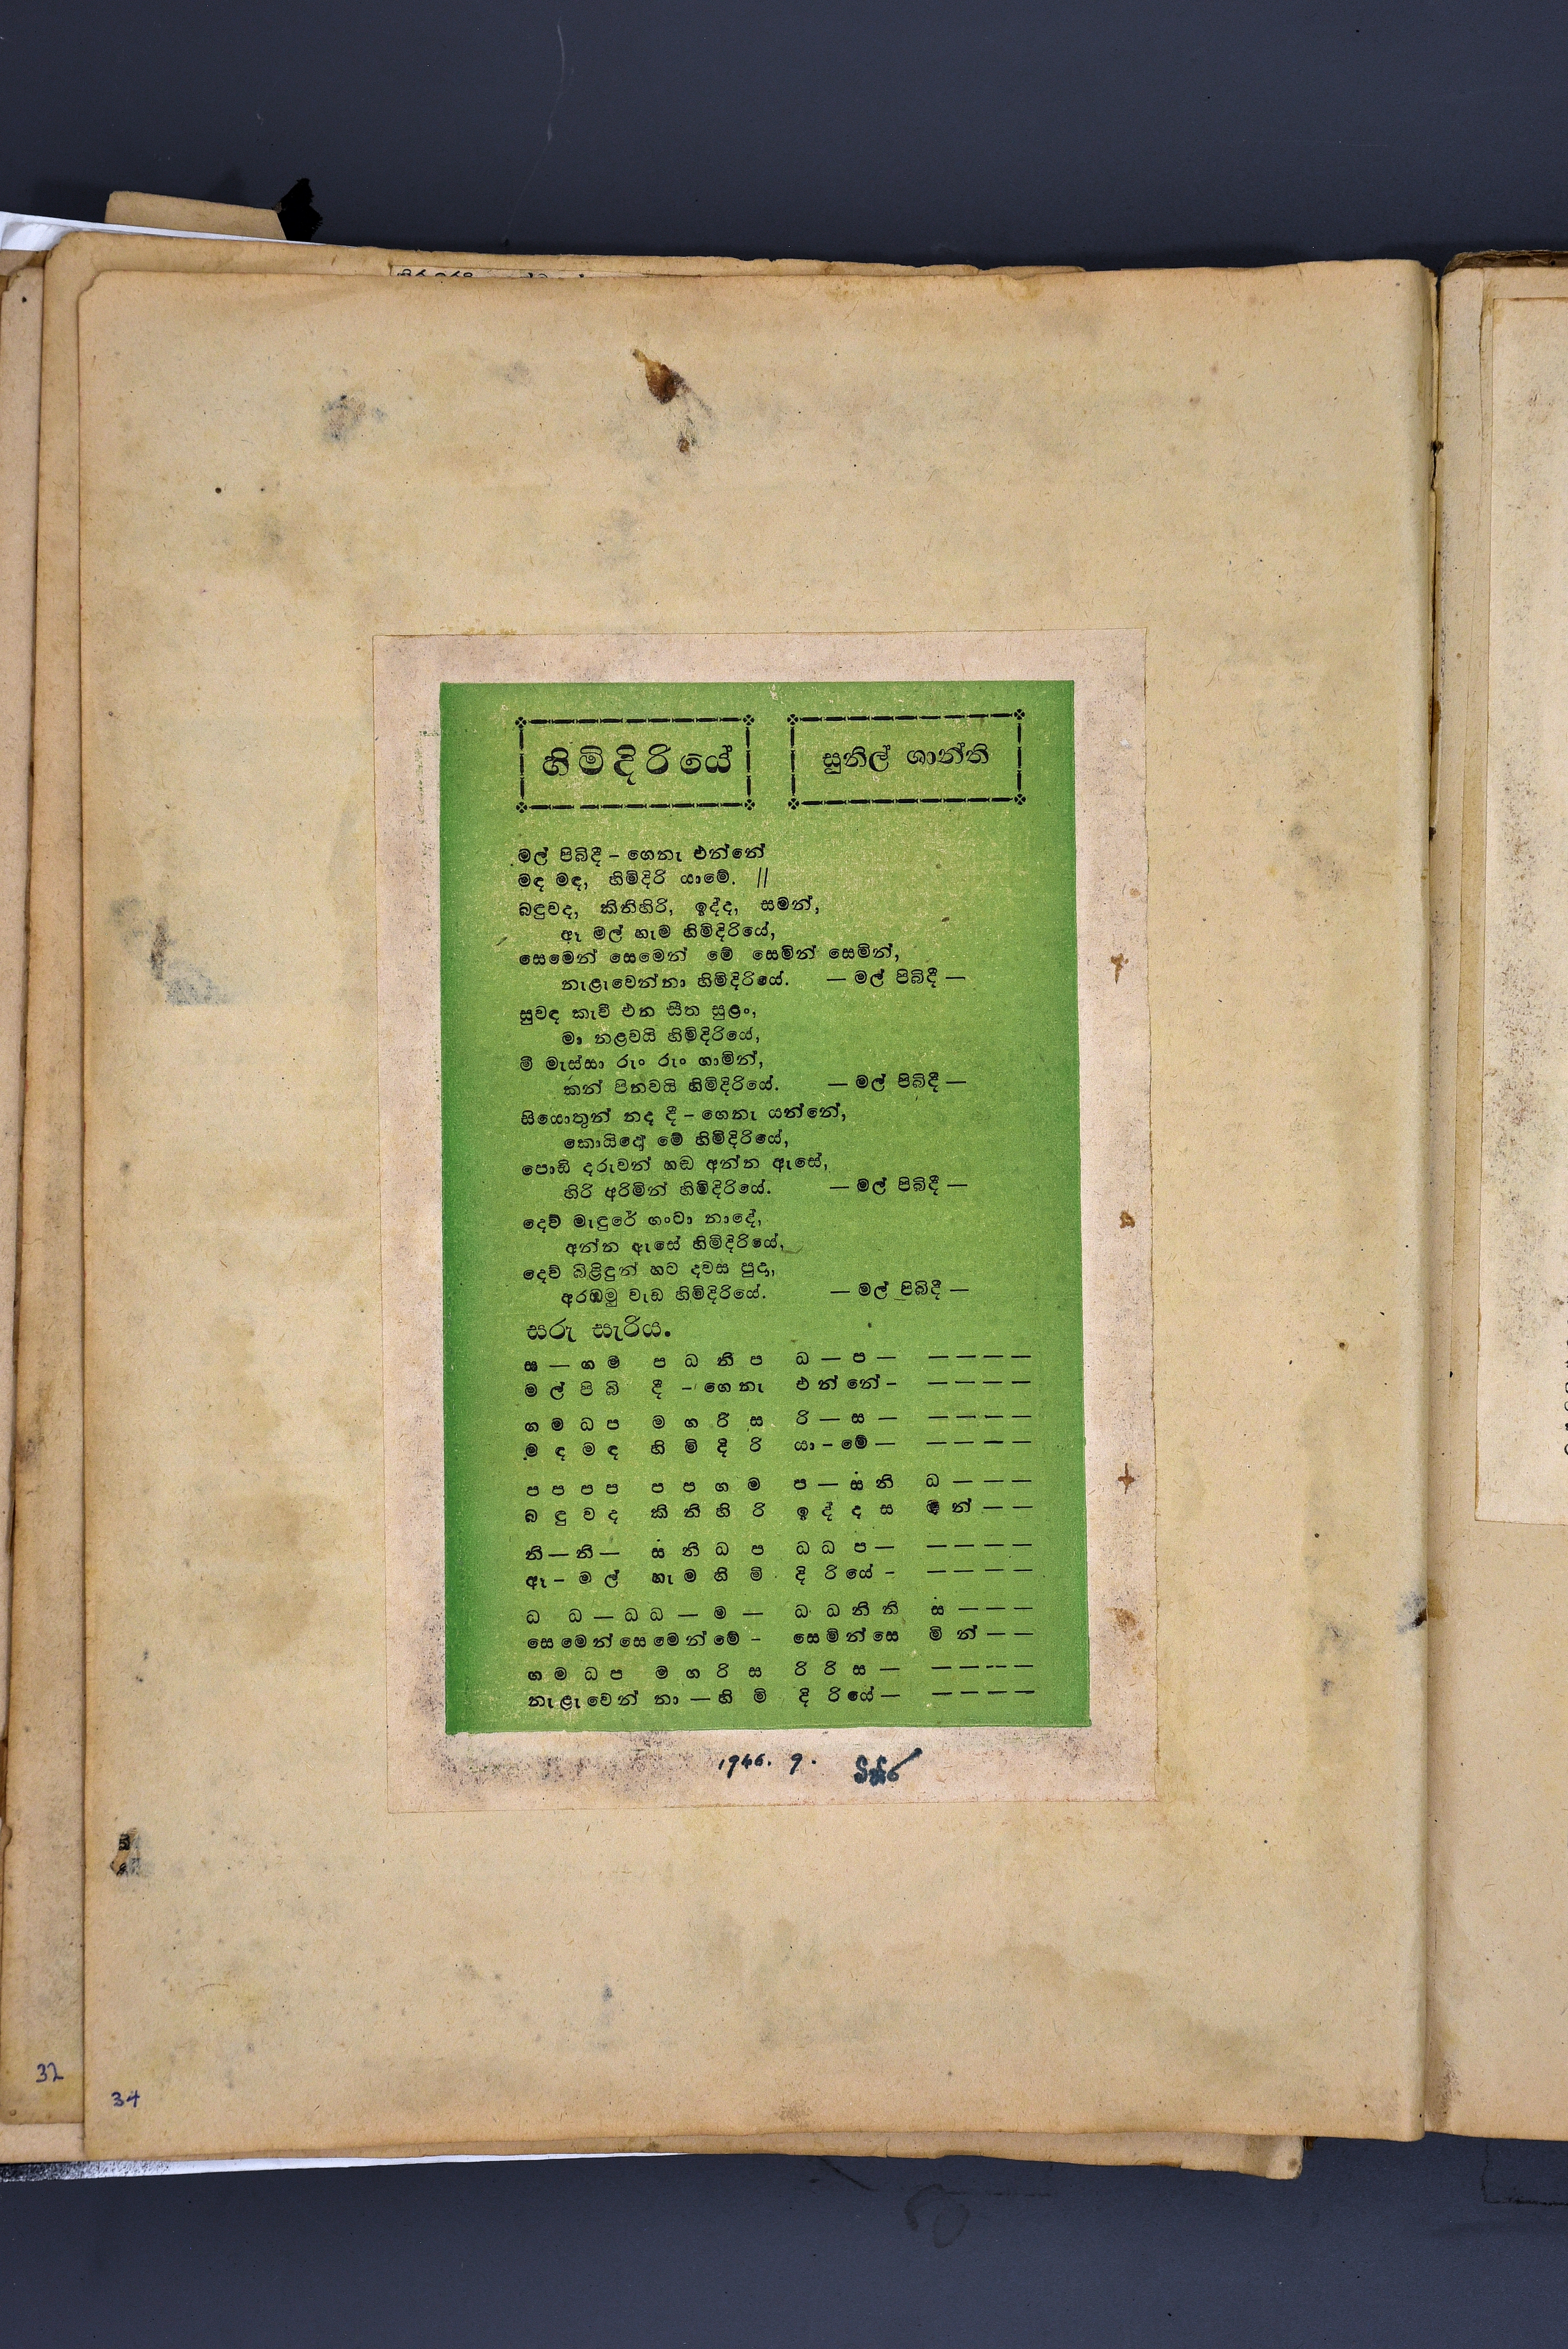 හිමිදිරියේ
සුනිල් ශාන්ති
මල් පිබිදී – ගෙනැ එන්නේ
මඳ මඳ, හිමිදිරි යාමේ. //
බඳුවද, කිනිහිරි, ඉද්ද, සමන්,
ඈ මල් හැම හිමිදිරියේ,
සෙමෙන් සෙමෙන් මේ සෙමින් සෙමින්,
නැළැවෙන්නා හිමිදිරියේ. — මල් පිබිදී —
සුවඳ කැවී එන සීත සුළං,
මා නළවයි හිමිදිරියේ,
මී මැස්සා රුං රුං ගාමින්,
කන් පිනවයි හිමිදිරියේ. — මල් පිබිදී —
සියොතුන් නද දී – ගෙනැ යන්නේ,
කොයිදෝ මේ හිමිදිරියේ,
පොඩි දරුවන් හඬ අන්න ඇසේ,
හිරි අරිමින් හිමිදිරියේ. — මල් පිබිදී —
දෙව් මැඳුරේ ගංටා නාදේ,
අන්න ඇසේ හිමිදිරියේ,
දෙව් බිළිඳුන් හට දවස පුදා,
අරඹමු වැඩ හිමිදිරියේ. — මල් පිබිදී —
සරු සැරිය.
ස — ග ම ප ධ නි ප ධ — ප — — — — —
ම ල් පි බි දී – ගෙ නැ එ න් නේ – — — — —
ග ම ධ ප ම ග රි ස රි — ස — — — — —
ම ඳ ම ඳ හි මි දි රි යා – මේ — — — — —
ප ප ප ප ප ප ග ම ප — ස් නි ධ — — —
බ ඳු ව ද කි නි හි රි ඉ ද් ද ස ම න් — —
නි — නි — ස නි ධ ප ධ ධ ප — — — — —
ඈ – ම ල් හැ ම හි මි දි රි යේ – — — — —
ධ ධ — ධ ධ — ම — ධ ධ නි නි ස — — —
සෙ මෙ න් සෙ මෙ න් මේ – සෙ මි න් සෙ මි න් — —
ග ම ධ ප ම ග රි ස රි රි ස — — — — —
නැ ළැ වෙ න් නා — හි මි දි රි යේ — — — — —
1946. 9.
32
34